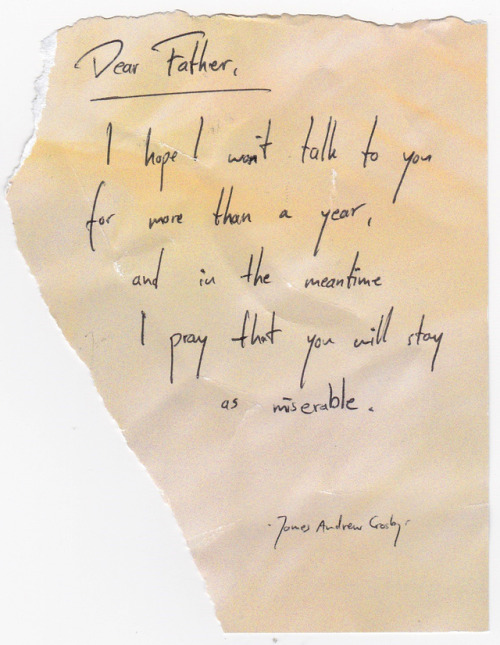 Dear Father,
I hope I won't talk to you
for more than a year,
and in the meantime
I pray that you will stay
as miserable.
- James Andrew Crosby -